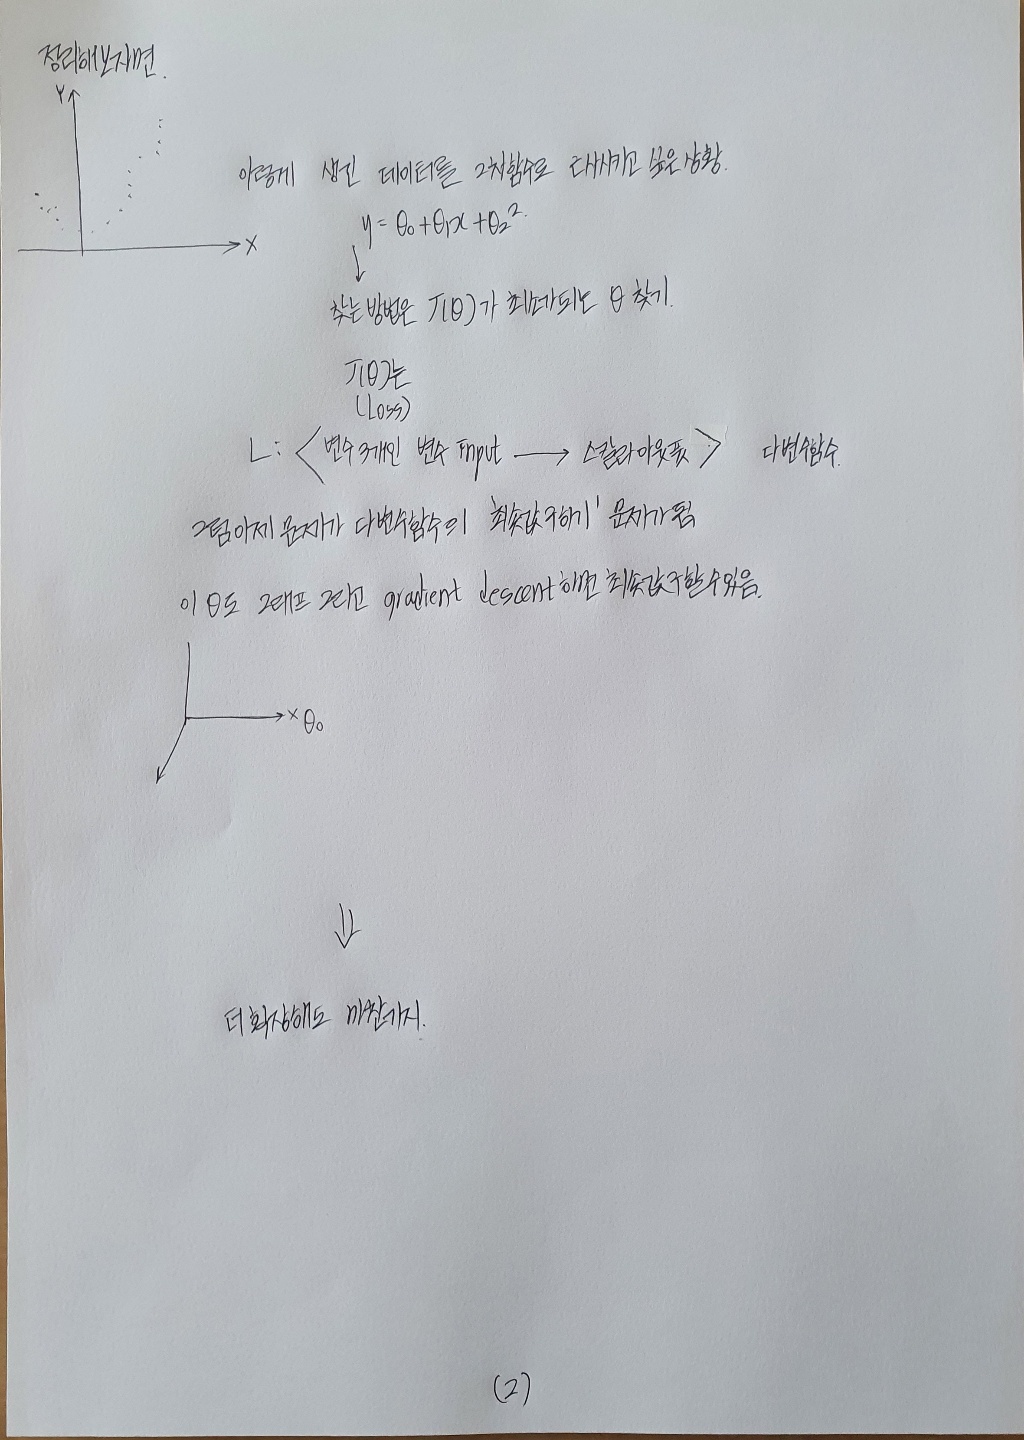 정리해보자면.
Y
이렇게 생긴 데이터를 2차함수로 근사시키고 싶은 상황.
y = θ₀+θ₁x+θ₂²
X
찾는 방법은 J(θ)가 최소가 되는 θ 찾기.
J(θ)는
(Loss)
L: < 변수 3개인 변수 Input → 스칼라 아웃풋 > 다변수함수.
그럼 이제 문제가 다변수함수의 '최솟값 구하기' 문제가 됨
이 θ도 그래프 그리고 gradient descent 하면 최솟값 구할 수 있음.
x θ₀
⇓
더 확장해도 마찬가지.
(2)